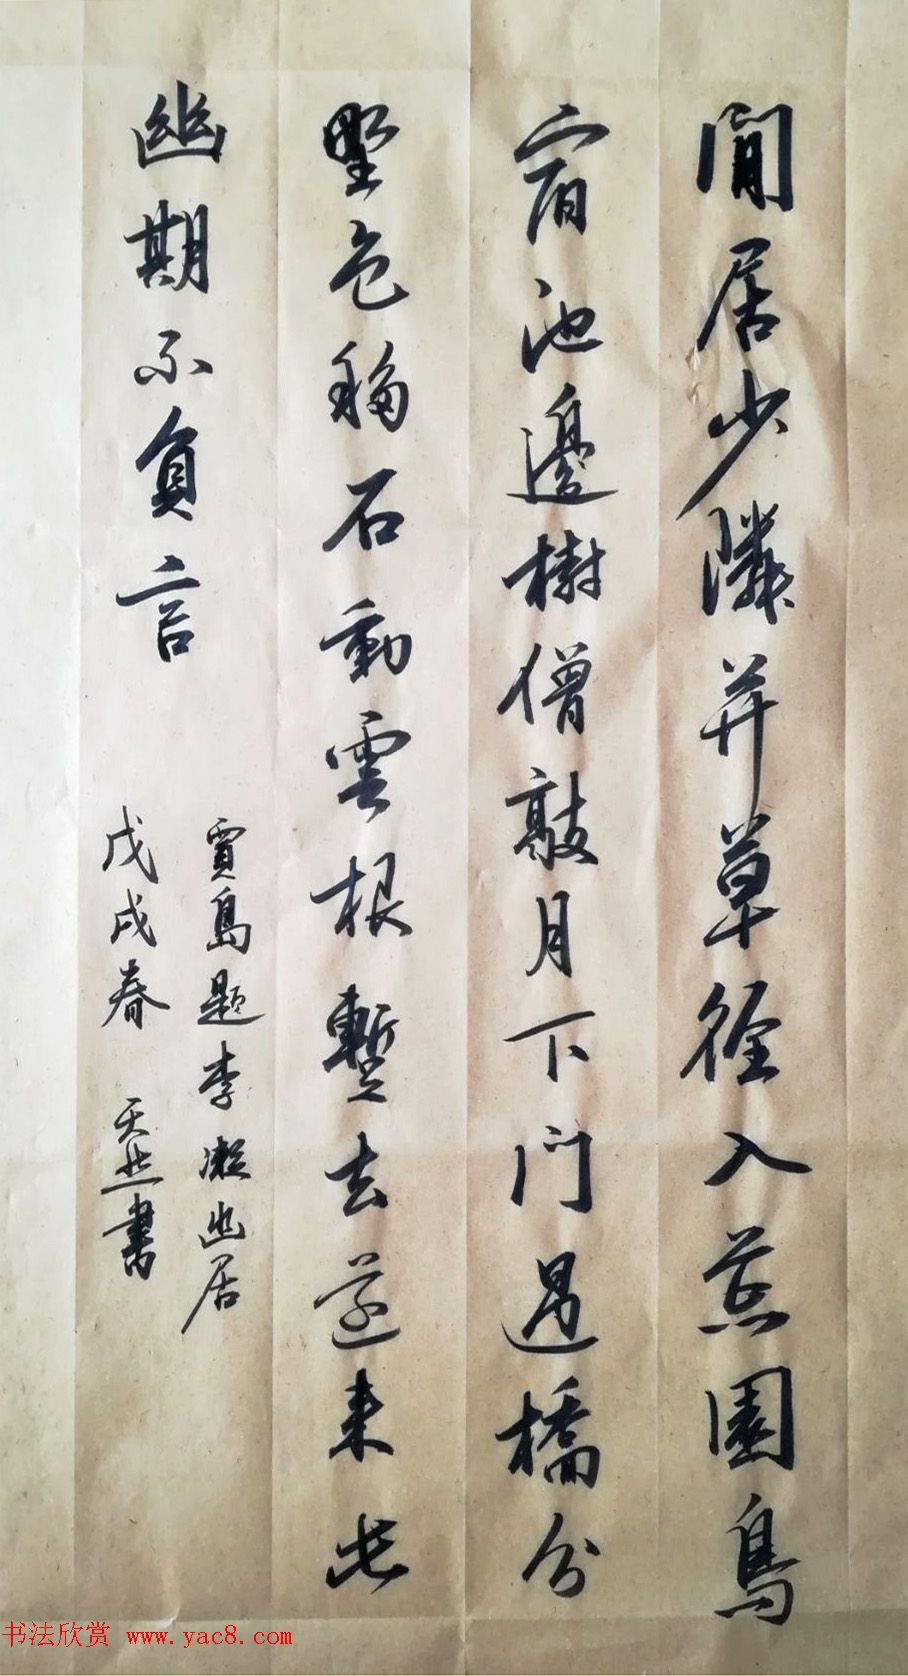 閒居少隣并草徑入荒園鳥
宿池邊樹僧敲月下門過橋分
野色移石動雲根暫去還来此
幽期不負言
賈島題李凝幽居
戊戌春 天然書
书法欣赏 www.yac8.com